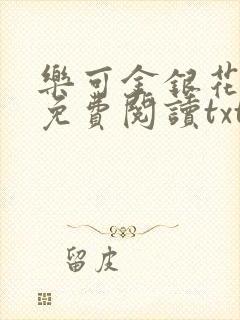 樂可金銀花
免費閱讀txt
留皮